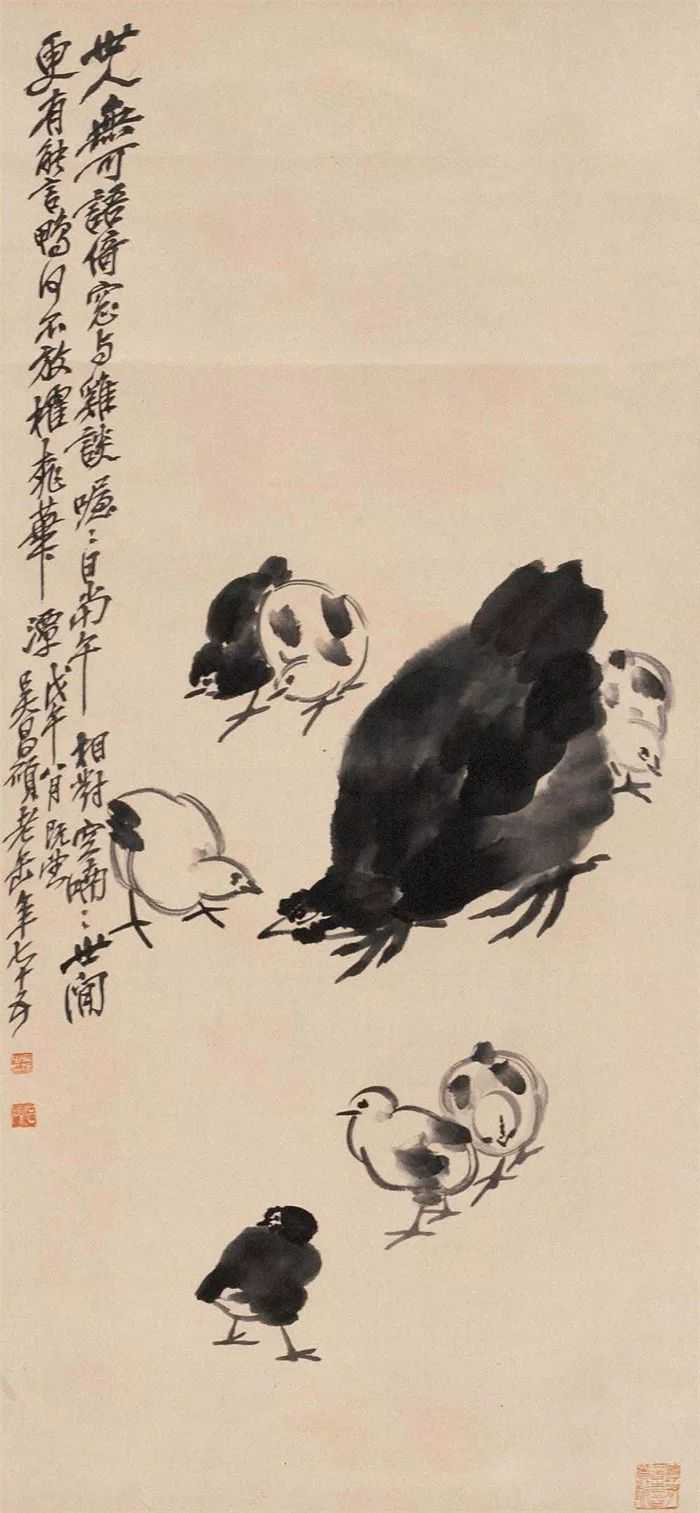 世人無可語倚窓与雞談喔〻日當午相對空喃〻世間
更有能言鴨何不放櫂龍華潭
戊午八月既望
吴昌碩老缶年七十五